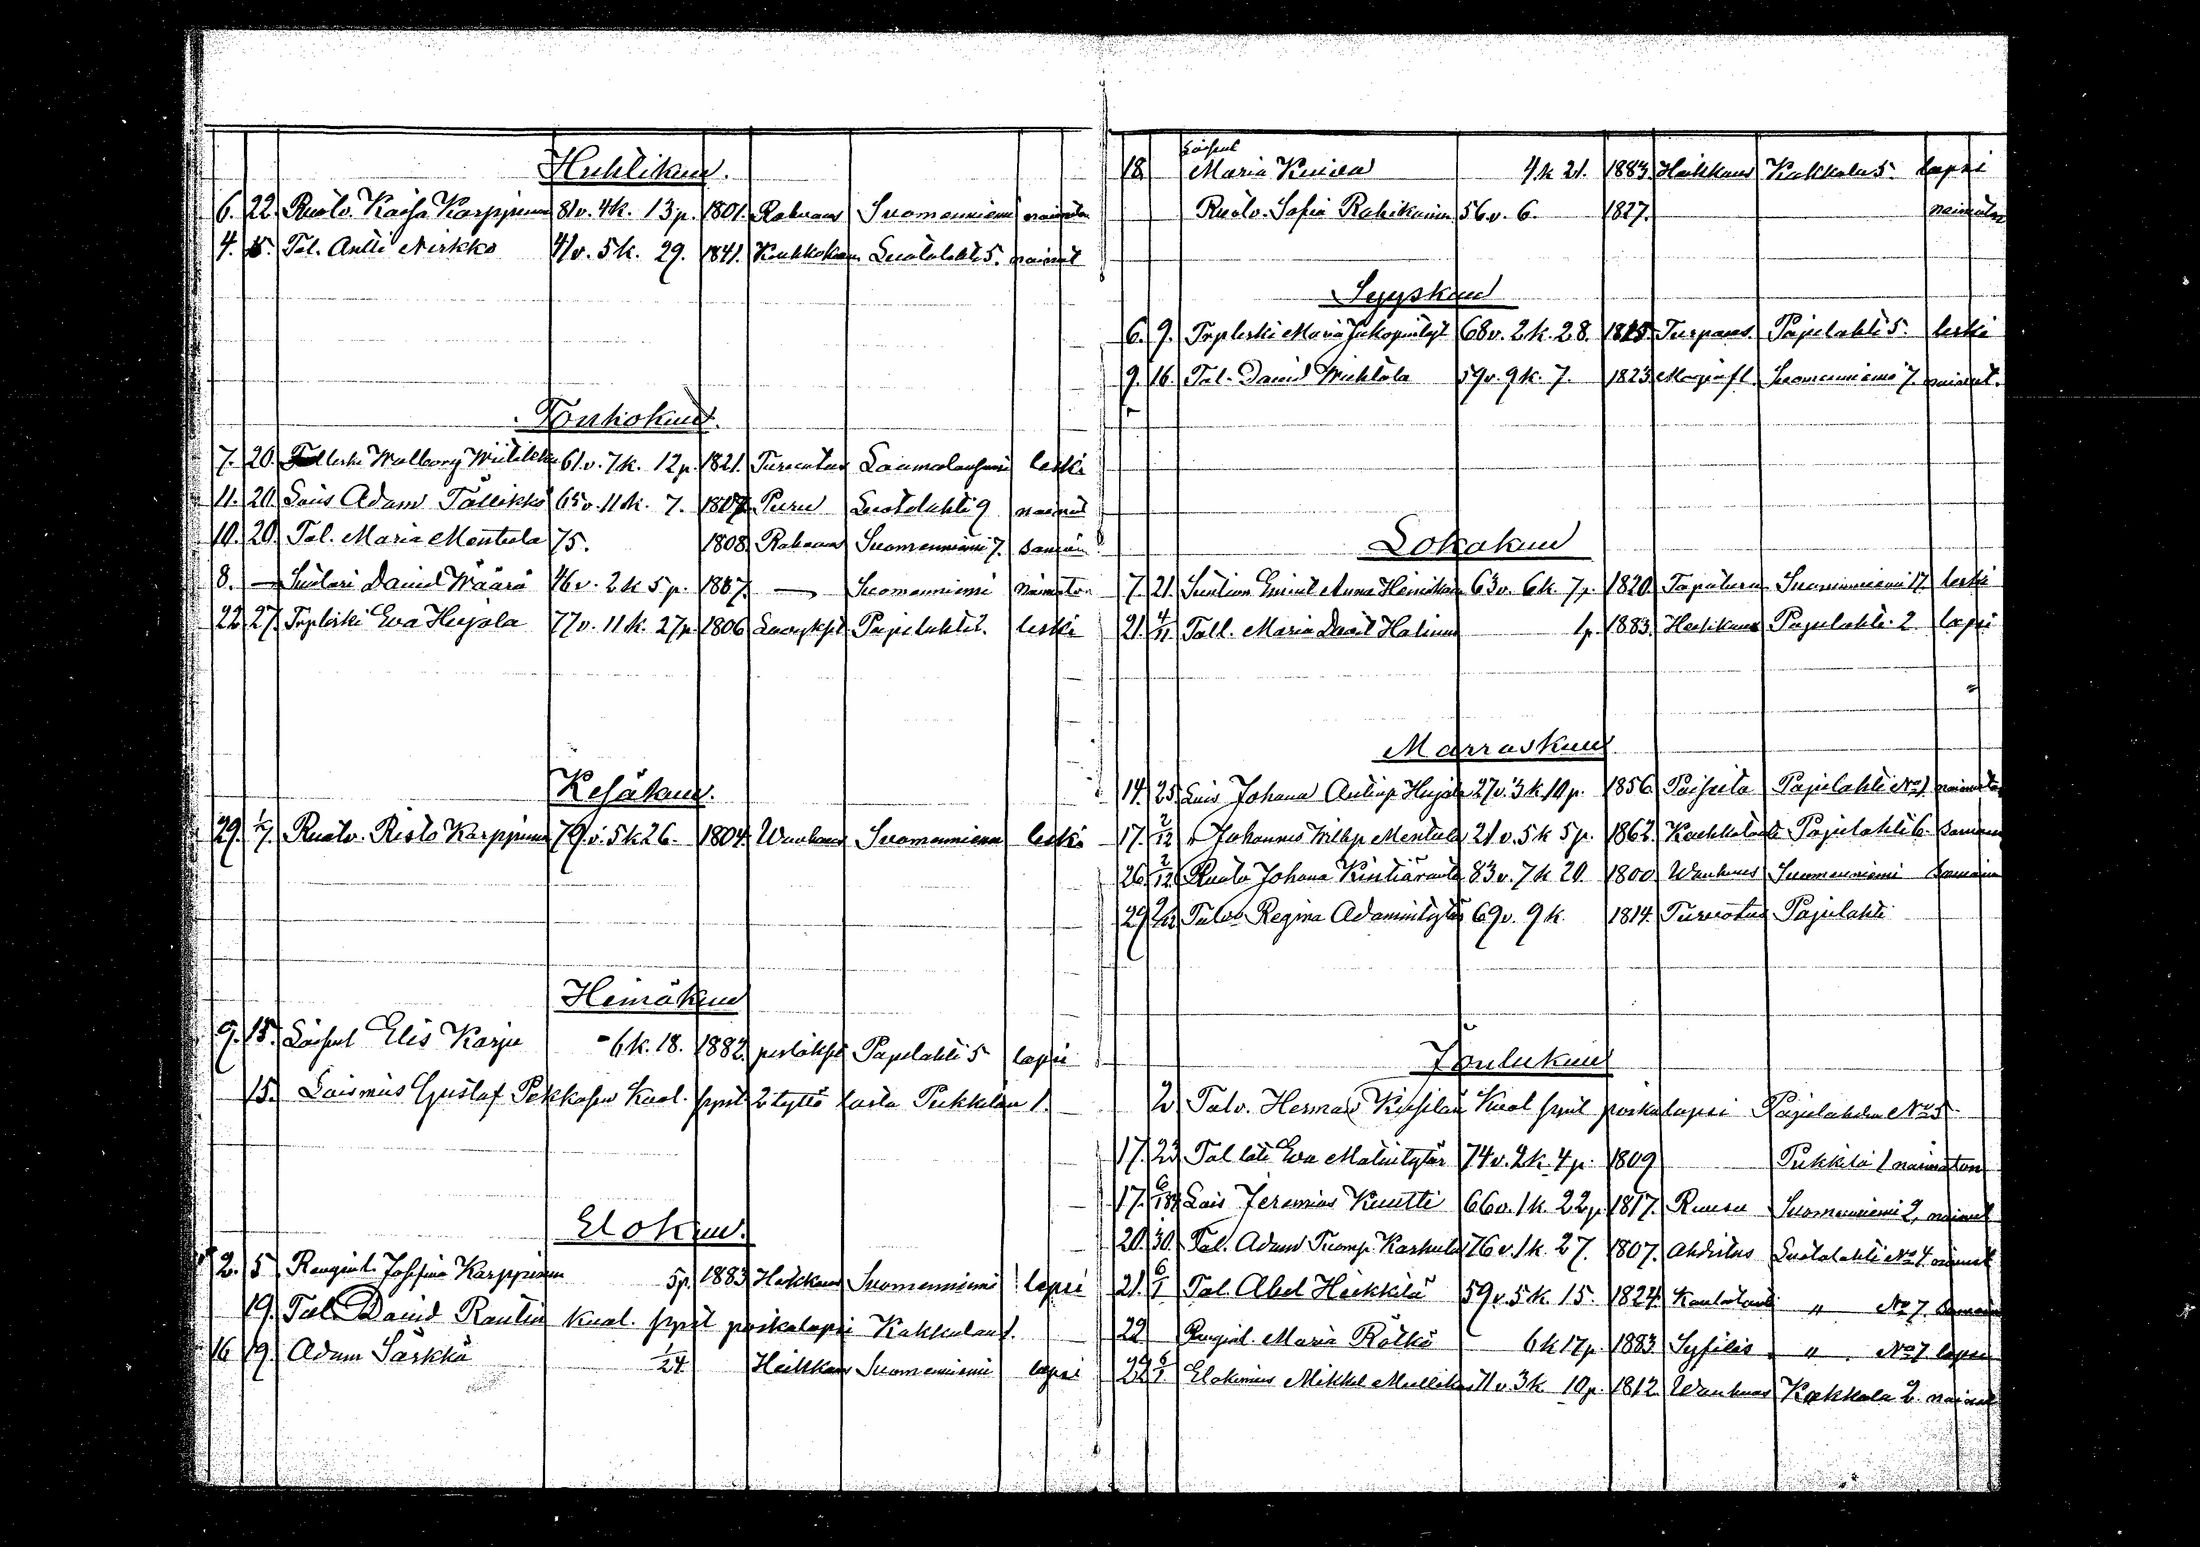 Huhtikuu.
6. 22. Ruotv. Kaisa Karppinen 81v. 4k. 13p. 1801. Suomenniemi naimaton
4. 15. Tal. Antti Nirkko 41v. 5k. 29. 1841. Luotolahti 5. nainut
Toukokuu.
7. 20. leski Walborg 61v. 7k. 12p. 1821. Turvotus leski
11. 20. Lois Adam Tällikkö 65v. 11k. 7. Puru Luotolahti 9 nainut
10. 20. Tal. Maria Mentula 75. 1808. Suomenniemi 7. samoin
8. — David Määrä 46v. 2k 5p. — Suomenniemi naimaton
22 27. Trpleski Eva Hujala 77v. 11k. 27p. 1806 Pajulahti 2. leski
Kesäkuu.
29. 1/7. Ruotv. Risto Karppinen 79v. 5k 26. 1804. Wanhuus Suomenniemi leski
Heinäkuu
9. 15. Loispul Elis Karju 6k. 18. 1882. Pajulahti 5 lapsi
15. Loismies Gustaf Pekkasen kuol. synt 2 tyttö lasta Pukkilan 1.
Elokuu.
2. 5 Rengint. Josefina Karppinen 5p. 1883 Heikkous Suomenniemi lapsi
19. Tal. David Rautia kuol. synt poikalapsi Kakkolan 1.
16 19. Adam Särkkä 1/24. Heikkous Suomenniemi lapsi
18. Loispul Maria 4k 21. 1883. Heikkous Kakkola 5. lapsi
Ruotv. Sofia Rahikainen 56v. 6. 1827. naimaton
Syyskuu
6. 9. Trpleski Maria Jakopintyt 68v. 2k. 28. 1815. Pajulahti 5. leski
9. 16. Tal. David 59v. 9k. 7. 1823. Suomenniemi 7. nainut.
Lokakuu
7. 21. Anna 63v. 6k. 7p. 1820. Suomenniemi 17. leski
21. 4/11 Tall. Maria David 1p. 1883. Heikkous Pajulahti 2 lapsi
Marraskuu
14. 25. Lois Johana Antinp Hujala 27v. 3k 10p. 1856. Pajulahti No 1 naimaton
17. 2/12 Johannes Wilhp Mentula 21v. 5k 5p. 1862. Pajulahti 6. samoin
26. 2/12 Ruotv Johana 83v. 7k 20. 1800 Wanhuus Suomenniemi samoin
29 2/12 Talv. Regina Adamintytär 69v. 9k. 1814. Turvotus Pajulahti
Joulukuu
2 Talv. Herman kuol synt poikalapsi Pajulahden No 5.
17. 23. Tal Eva Matintytär 74v. 2k. 4p. 1809 Pukkila 1 naimaton
17. Lois Jeremias Kuutti 66v. 1k. 22p. 1817. Suomenniemi 2. nainut
20. 30. Tal. Adam Tuomp. Karhula 76v. 1k. 27. 1807. Ahdistus Luotolahti No 4 nainut
21. 6/1 Tal. Abel Heikkilä 59v. 5k. 15. 1824. " No 7. samoin
22 Rengint. Maria Rötkö 6k 17p. 1883. Syfilis " No 7 lapsi
22 6/1 Mikkel 71v. 3k 10p. 1812. Wanhuus Kakkola 2. nainut